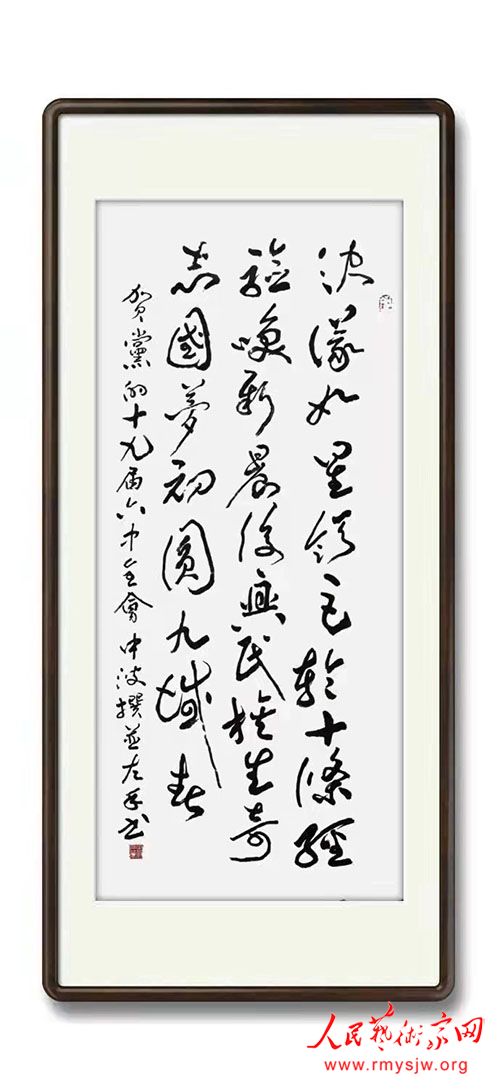 决議如星領巨輪十條經
驗喚新晨復興民族生奇
志國夢初圓九域春
賀黨的十九届六中全會中波撰並左手书
人民藝術家网
www.rmysjw.org